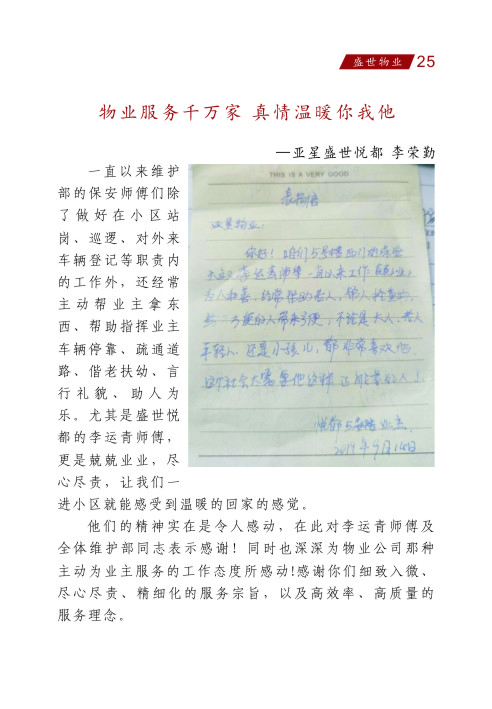 盛世物业 25
物业服务千万家 真情温暖你我他
—亚星盛世悦都 李荣勤
一直以来维护
部的保安师傅们除
了做好在小区站
岗、巡逻、对外来
车辆登记等职责内
的工作外，还经常
主动帮业主拿东
西、帮助指挥业主
车辆停靠、疏通道
路、偕老扶幼、言
行礼貌、助人为
乐。尤其是盛世悦
都的李运青师傅，
更是兢兢业业，尽
心尽责，让我们一
进小区就能感受到温暖的回家的感觉。
THIS IS A VERY GOOD
表扬信
你好！咱们5号楼西门的保安
一直以来工作
老人
不论是大人、老人
年轻人、还是小孩儿，都非常喜欢他
这个社会太需要他这样正能量的人！
悦都5号楼业主
2019年9月14日
他们的精神实在是令人感动，在此对李运青师傅及
全体维护部同志表示感谢！同时也深深为物业公司那种
主动为业主服务的工作态度所感动!感谢你们细致入微、
尽心尽责、精细化的服务宗旨，以及高效率、高质量的
服务理念。